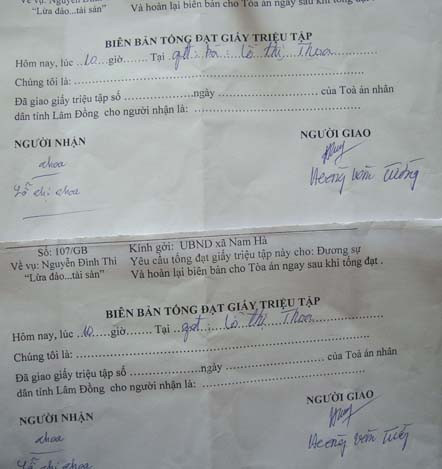 "Lừa đảo...tài sản" Và hoàn lại biên bản cho Tòa án ngay sau khi tống
BIÊN BẢN TỐNG ĐẠT GIẤY TRIỆU TẬP
Hôm nay, lúc ..10....giờ....... Tại .. Lò Thị Thoa
Chúng tôi là:
Đã giao giấy triệu tập số ....................ngày ............................ của Toà án nhân
dân tỉnh Lâm Đồng cho người nhận là:
NGƯỜI NHẬN NGƯỜI GIAO
thoa
Số: 107/GB Kính gởi: UBND xã Nam Hà
Về vụ: Nguyễn Đình Thi Yêu cầu tống đạt giấy triệu tập này cho: Đương sự
"Lừa đảo...tài sản" Và hoàn lại biên bản cho Tòa án ngay sau khi tống đạt .
BIÊN BẢN TỐNG ĐẠT GIẤY TRIỆU TẬP
Hôm nay, lúc ..10.....giờ....... Tại .. Lò Thị Thoa
Chúng tôi là:
Đã giao giấy triệu tập số ....................ngày ............................ của Toà án nhân
dân tỉnh Lâm Đồng cho người nhận là:
NGƯỜI NHẬN NGƯỜI GIAO
thoa